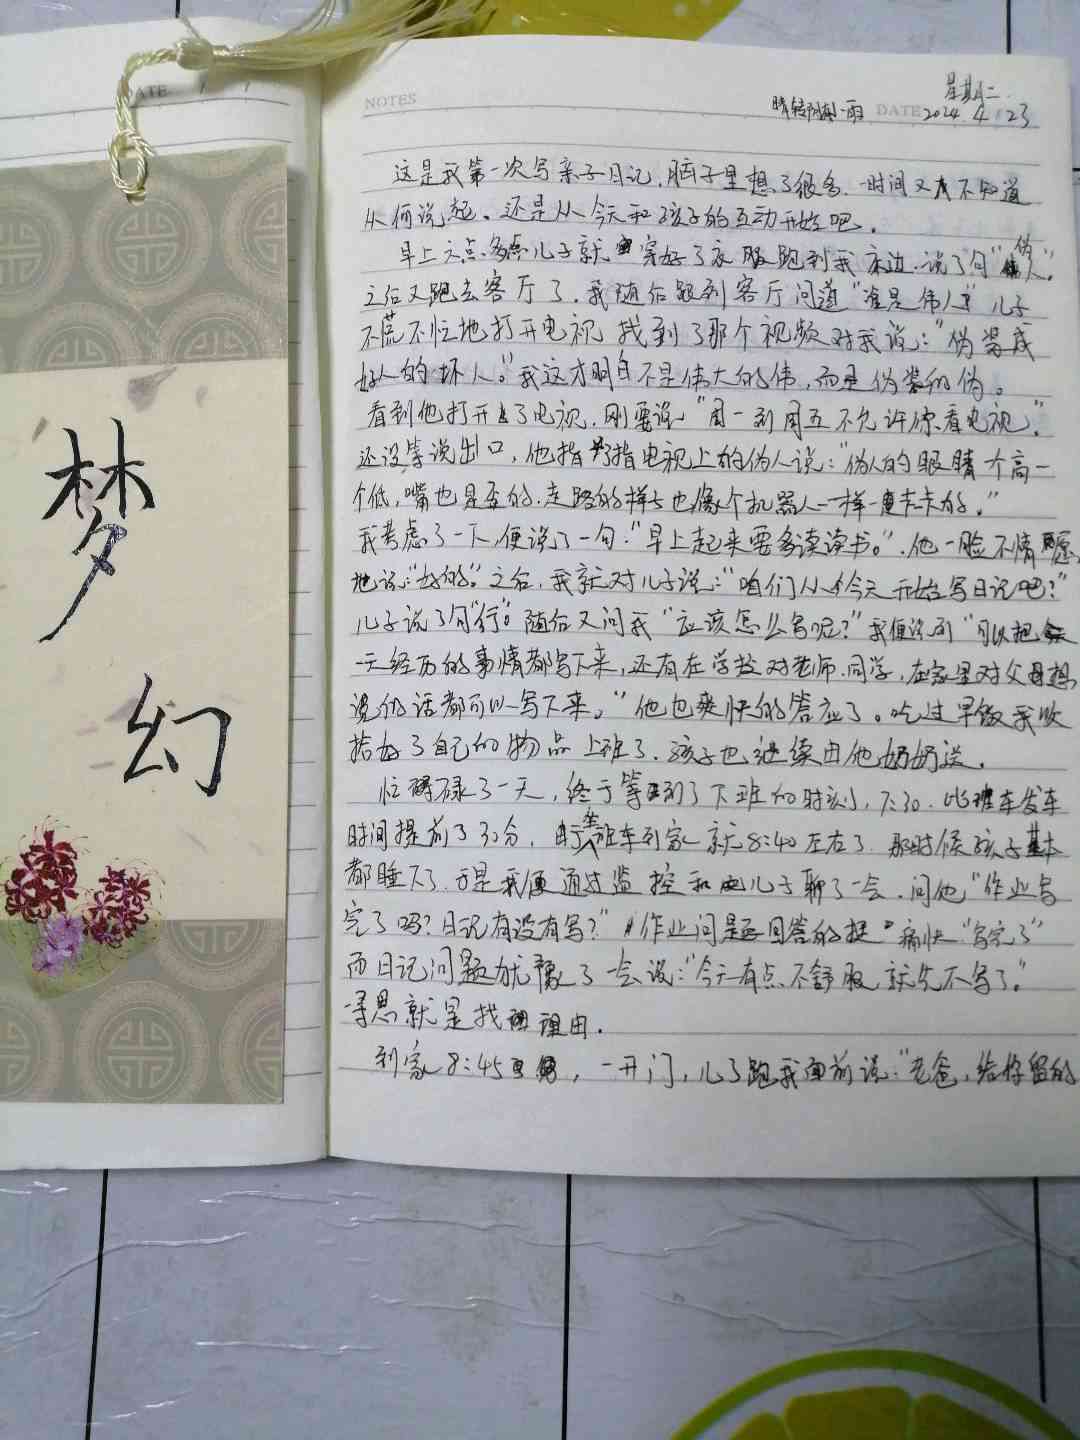 ATE
梦
幻
NOTES
星期二
晴转阴有雨 DATE 2024 4 23
这是我第一次写亲子日记,脑子里想了很多,一时间又不知道
从何说起。还是从今天和孩子的互动开始吧。
早上六点多儿子就穿好了衣服跑到我床边,说了句“伪人”。
之后又跑去客厅了,我随后跟到客厅问道“谁是伟人”儿子
不慌不忙地打开电视,找到了那个视频对我说:“伪装成
好人的坏人。”我这才明白不是伟大的伟,而是伪装的伪。
看到他打开了电视,刚要说“周一到周五不允许你看电视”,
还没等说出口,他指指电视上的伪人说:“伪人的眼睛一个高一
个低,嘴也是歪的,走路的样子也像个机器人一样一卡一卡的。”
我考虑了一下,便说了一句:“早上起来要多读读书。”,他一脸不情愿
地说:“好的”。之后,我就对儿子说:“咱们从今天开始写日记吧?”
儿子说了句“行”。随后又问我“应该怎么写呢?”我便说到“可以把
一天经历的事情都写下来,还有在学校对老师、同学,在家里对父母想
说的话都可以写下来。”他也爽快的答应了。吃过早饭我收
拾好了自己的物品上班了,孩子也继续由他奶奶送。
忙碌了一天,终于等到了下班的时刻,7:30,比班车发车
时间提前了30分,坐班车到家就8:40左右了,那时候孩子基本
都睡下了,于是我便通过监控和儿子聊了一会,问他“作业写
完了吗?日记有没有写?”作业问题回答的挺痛快“写完了”
而日记问题犹豫了一会说:“今天有点不舒服,就先不写了。”
寻思就是找理由。
到家8:45,一开门,儿子跑我面前说:“老爸,给你留的